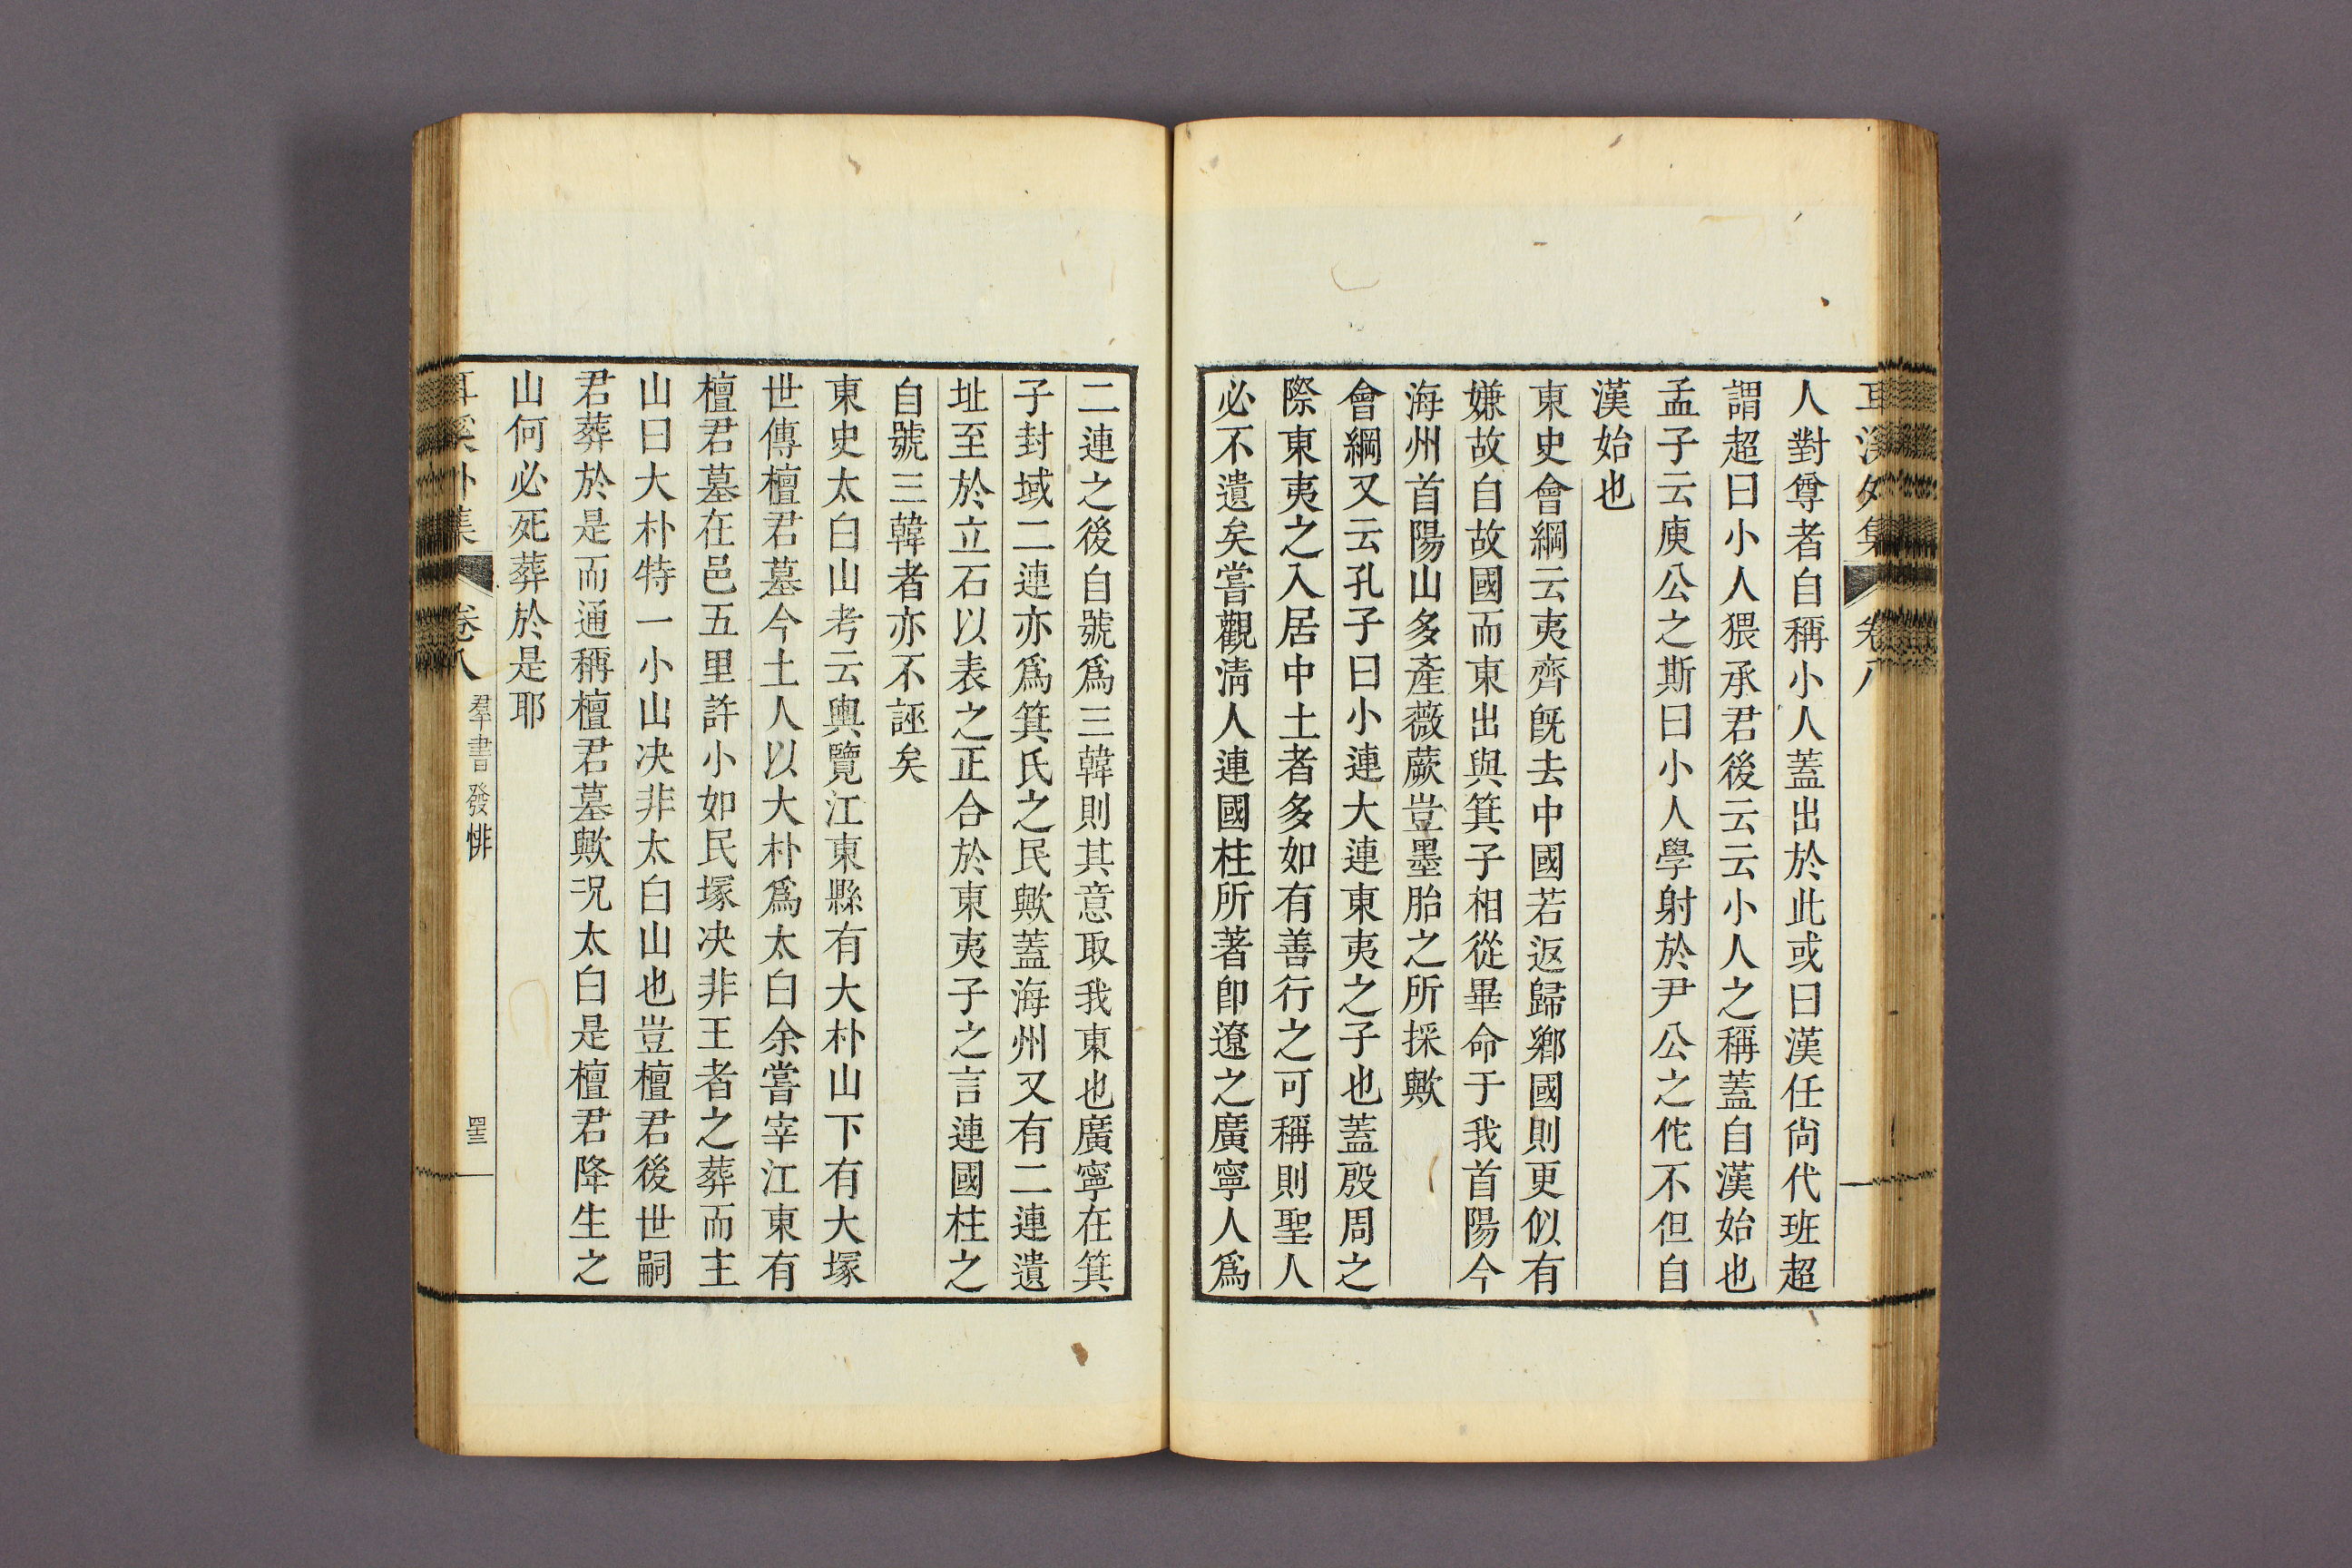 耳溪外集 卷八
人對尊者自稱小人蓋出於此或曰漢任尙代班超
謂超曰小人猥承君後云云小人之稱蓋自漢始也
孟子云庾公之斯曰小人學射於尹公之佗不但自
漢始也
東史會綱云夷齊旣去中國若返歸鄕國則更似有
嫌故自故國而東出與箕子相從畢命于我首陽今
海州首陽山多產薇蕨豈墨胎之所採歟
會綱又云孔子曰小連大連東夷之子也蓋殷周之
際東夷之入居中土者多如有善行之可稱則聖人
必不遺矣嘗觀淸人連國柱所著卽遼之廣寧人爲
二連之後自號爲三韓則其意取我東也廣寧在箕
子封域二連亦爲箕氏之民歟蓋海州又有二連遺
址至於立石以表之正合於東夷子之言連國柱之
自號三韓者亦不誣矣
東史太白山考云輿覽江東縣有大朴山下有大塚
世傳檀君墓今土人以大朴爲太白余嘗宰江東有
檀君墓在邑五里許小如民塚决非王者之葬而主
山曰大朴特一小山决非太白山也豈檀君後世嗣
君葬於是而通稱檀君墓歟况太白是檀君降生之
山何必死葬於是耶
耳溪外集 卷八 羣書發悱 四十三